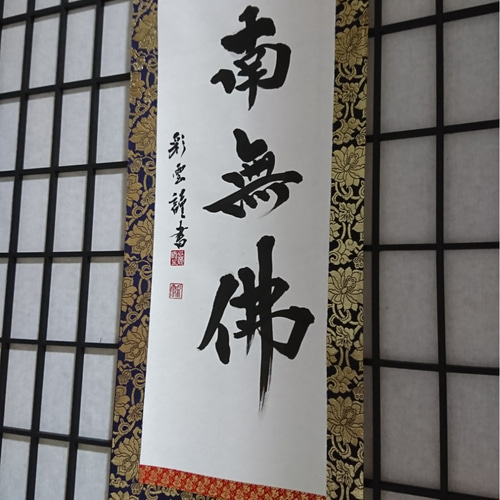 南無佛
彩雲謹書